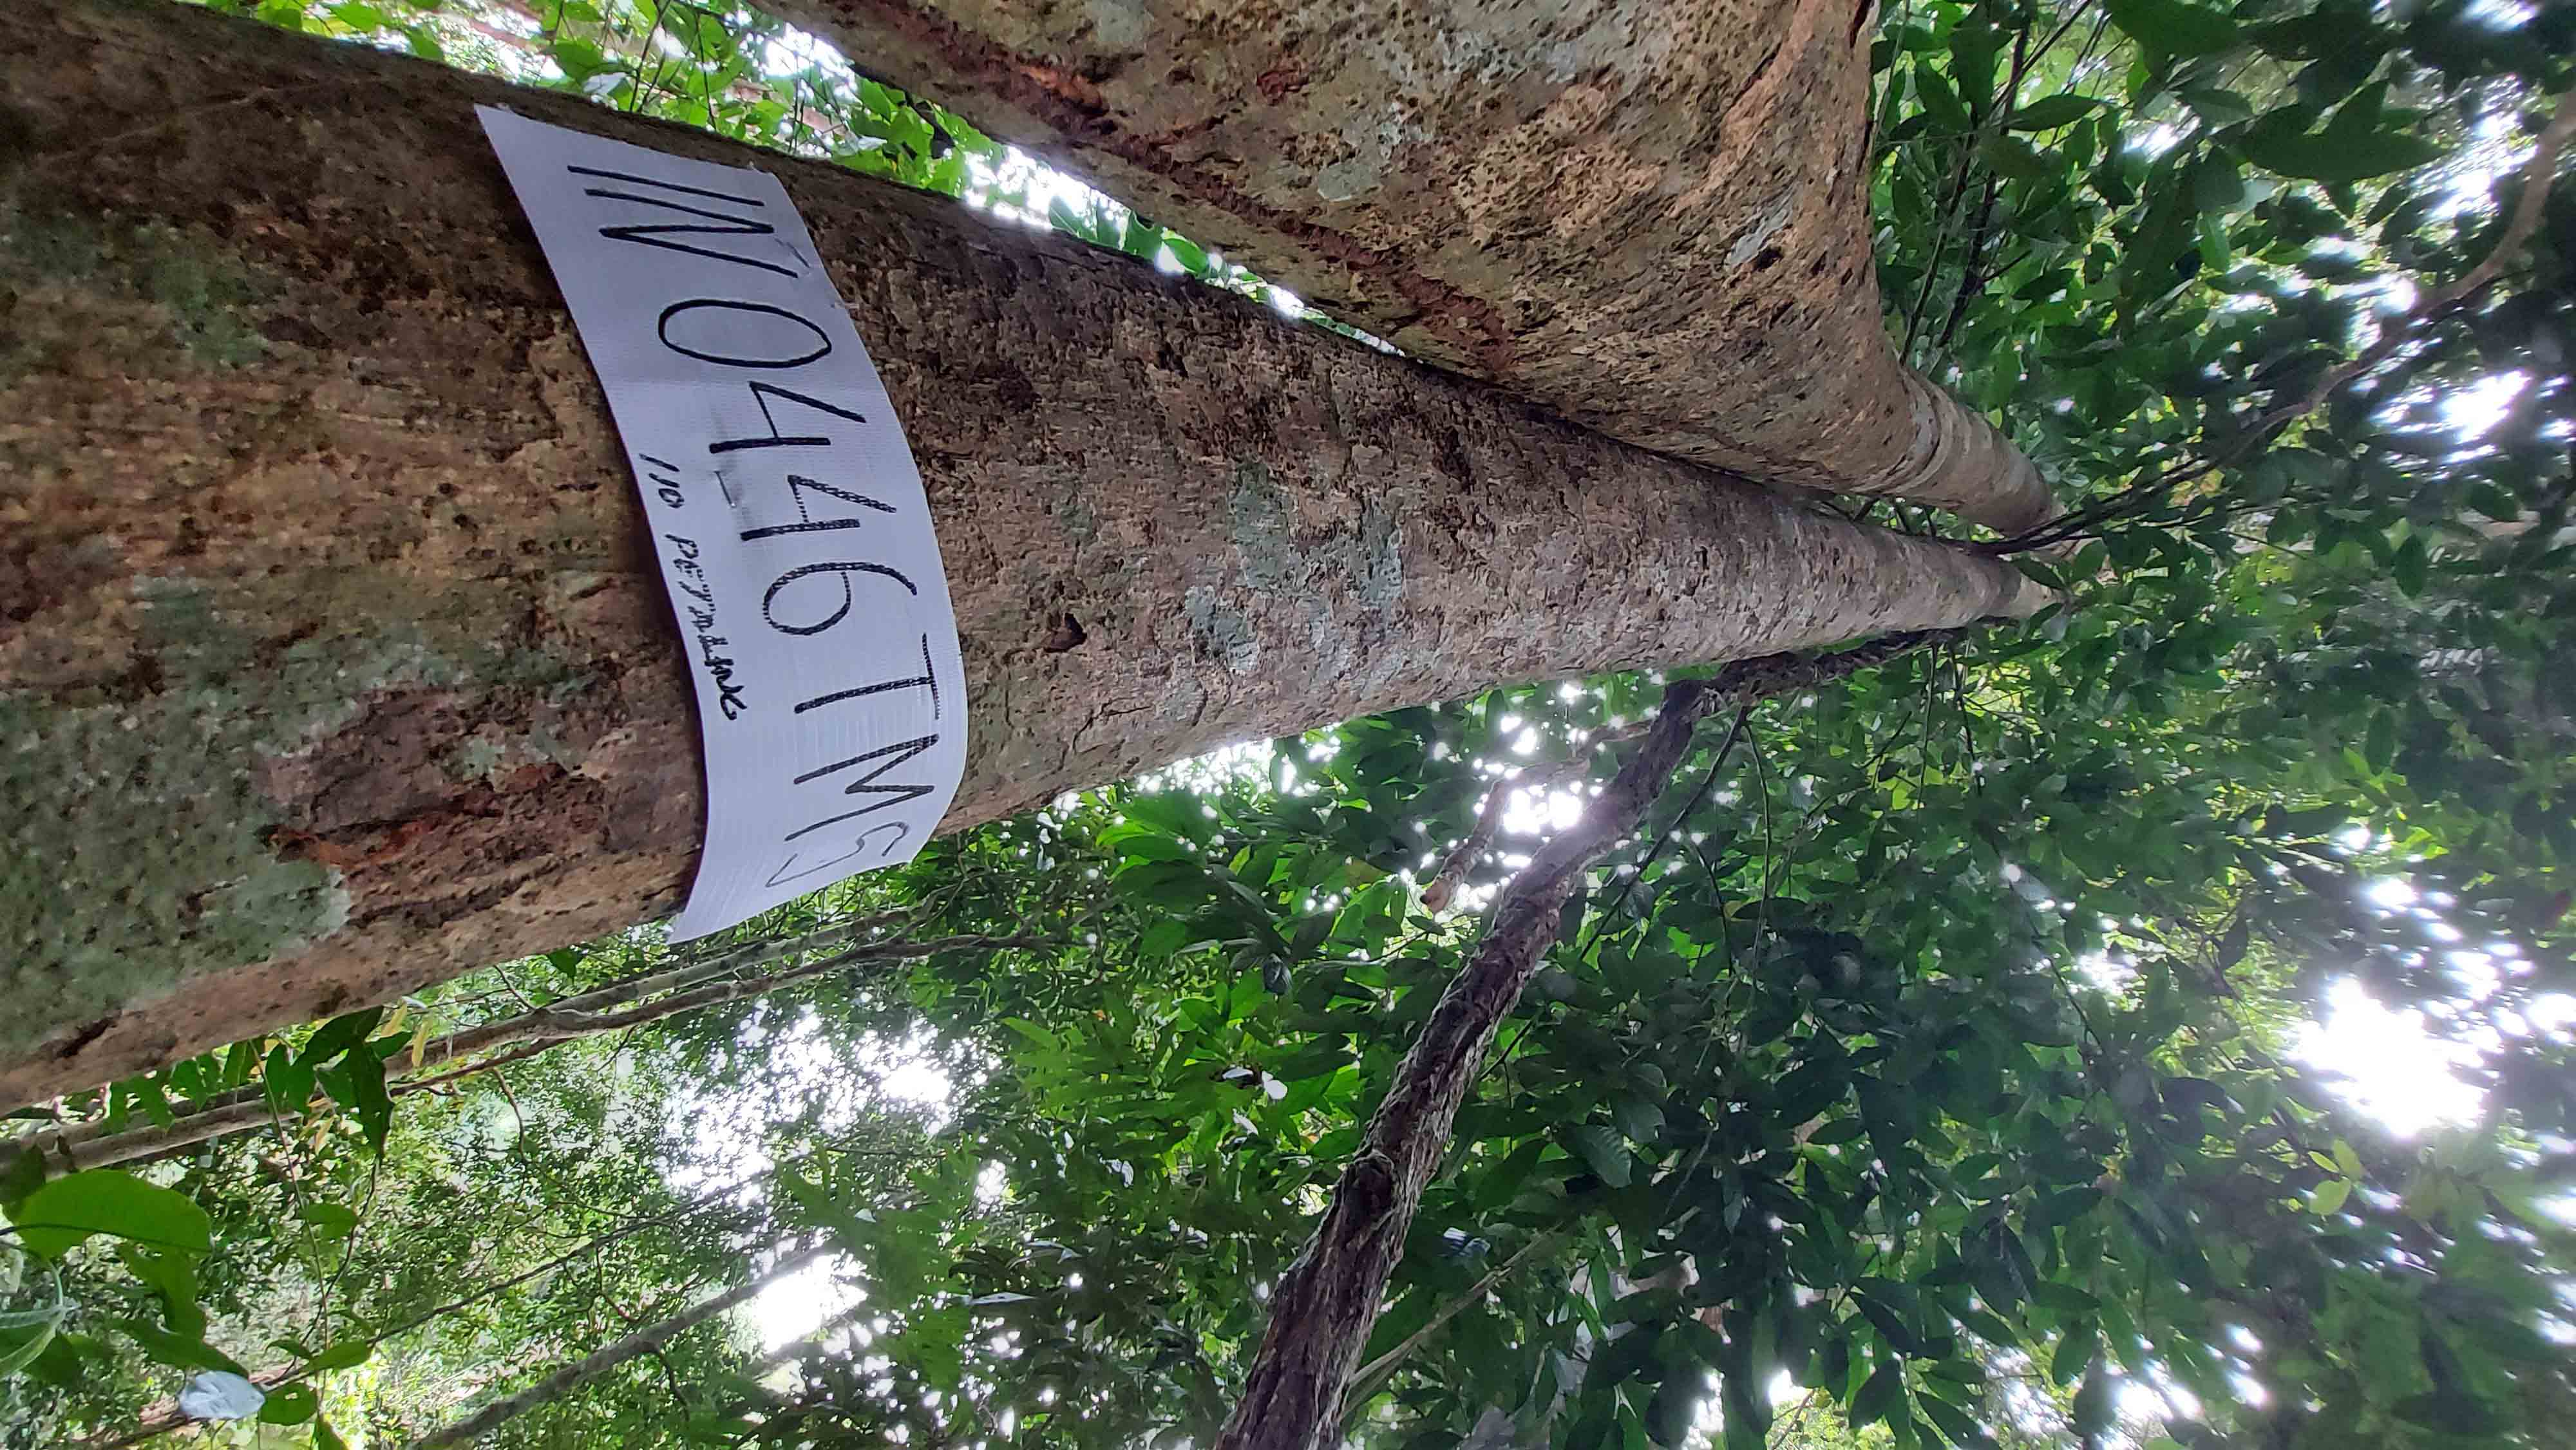 IN0446TMS
110 PETALING